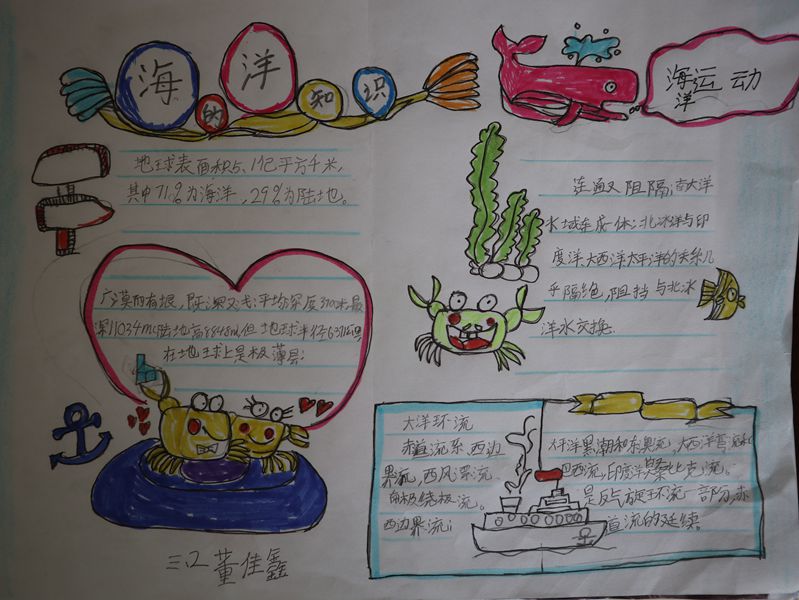 海的洋知识
地球表面积5、1亿平方千米,
其中71%为海洋,29%为陆地。
广漠而有垠,既深又浅:平均深度3700米,最
深11034m(陆地高8848m但地球半径6371公里
在地球上是极薄层;
三、2 董佳鑫
海洋运动
连通又阻隔;南大洋
水域连成一体;北冰洋与印
度洋,大西洋太平洋的关系几
乎隔绝,阻挡与北冰
洋水交换.
大洋环流
赤道流系,西边
界流,西风漂流
南极绕极流。
西边界流;
平洋黑潮和东奥流,大西洋
巴西流,印度洋
是反气旋环流一部分,赤
道流的延续